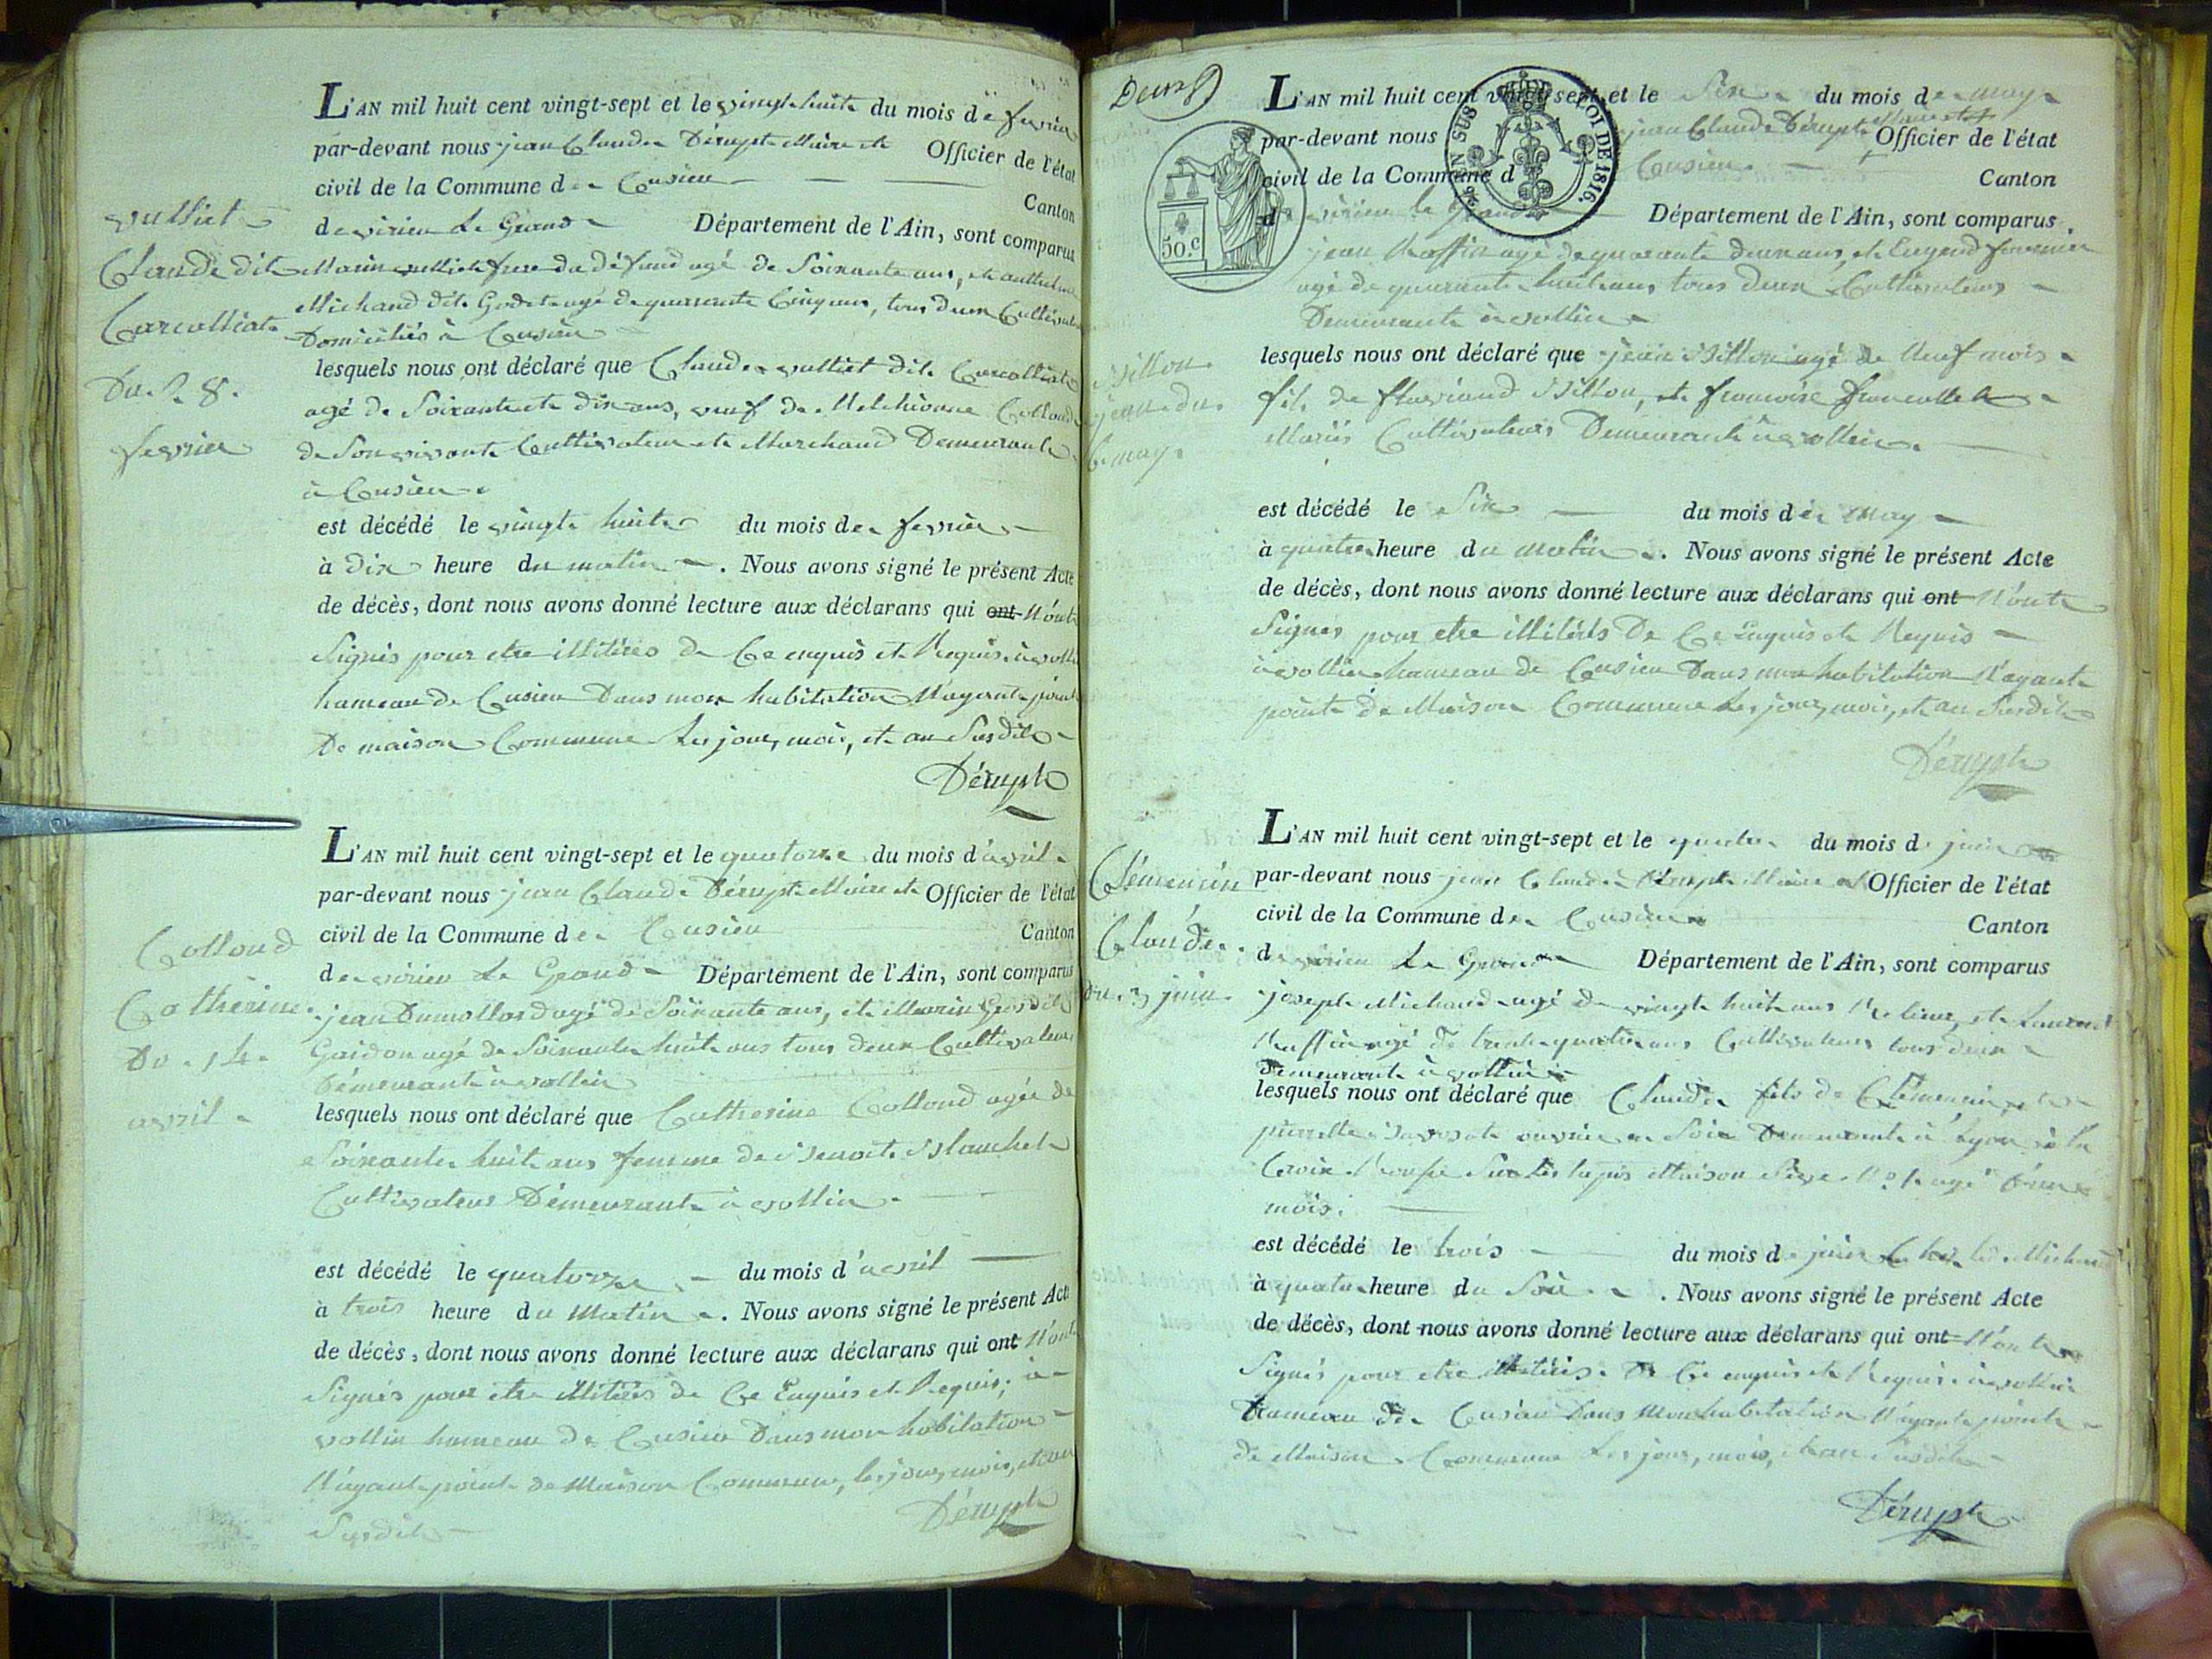 L'AN mil huit cent vingt-sept et le vingt huit du mois de fevrier
par-devant nous jean Claude Dérupt Maire et Officier de l'état
civil de la Commune de Cusieu Canton
de virieu Le Grand Département de l'Ain, sont comparus
vulliet
Claude dit
Carcolliat
Du 28
fevrier
Marin vulliet frere du défund agé de Soixante ans, et anthelme
Michaud dit Godet agé de quarante Cinq ans, tous deux Cultivat
Domiciliés à Cusieu
lesquels nous ont déclaré que Claude vulliet dit Carcolliat
agé de Soixante et dix ans, veuf de Melchionne Collond
de Son vivant Cultivateur et Marchand Demeurant
à Cusieu
est décédé le vingt huit du mois de fevrier
à dix heure du matin. Nous avons signé le présent Acte
de décès, dont nous avons donné lecture aux déclarans qui ont N'ont
Signés pour etre illitérés de Ce enquis et Requis, à voll
hameau de Cusieu Dans mon habitation N'ayant point
De maison Commune Les jour, mois, et an Susdit
Dérupt
L'AN mil huit cent vingt-sept et le quatorze du mois d'avril
par-devant nous jean Claude Dérupt Maire et Officier de l'état
civil de la Commune de Cusieu Canton
de virieu Le Grand Département de l'Ain, sont comparus
Collond
Catherine
Du 14
avril
jean Dumollard agé de Soixante ans, et Marin
Gaidon agé de Soixante huit ans tous deux Cultivateurs
Démeurant à vollin
lesquels nous ont déclaré que Catherine Collond agée de
Soixante huit ans femme de Benoit Blanchet
Cultivateur Démeurant à vollin
est décédé le quatorze du mois d'avril
à trois heure du Matin. Nous avons signé le présent Acte
de décès, dont nous avons donné lecture aux déclarans qui ont N'ont
Signés pour etre illitérés de Ce Enquis et Requis, à
vollin hameau de Cusieu Dans mon habitation
N'ayant point de Maison Commune, les jour, mois, et an
Susdit
Dérupt
Deux
L'AN mil huit cent vingt-sept et le Six du mois de may
par-devant nous jean Claude Dérupt Maire et Officier de l'état
civil de la Commune d Cusieu Canton
de virieu le Grand Département de l'Ain, sont comparus
50.c
LOI DE 1816.
jean Raffin agé de quarante deux ans, et Eugend fournier
agé de quarante huit ans tous deux Cultivateurs
Demeurant à vollin
Billon
jean du
6 may
lesquels nous ont déclaré que jean Billon agé de Neuf mois
fils de Billon, et francoise
Mariés Cultivateurs Demeurant à vollin
est décédé le Six du mois de May
à quatre heure du Matin. Nous avons signé le présent Acte
de décès, dont nous avons donné lecture aux déclarans qui ont N'ont
Signés pour etre illitérés De Ce Enquis et Requis
à vollin hameau de Cusieu Dans mon habitation N'ayant
point de Maison Commune Les jour, mois, et an Susdit
Dérupt
L'AN mil huit cent vingt-sept et le quatre du mois de juin
par-devant nous jean Claude Dérupt Maire et Officier de l'état
civil de la Commune de Cusieu Canton
de virieu Le Grand Département de l'Ain, sont comparus
Clémencin
Claude
du 3 juin
joseph Michaud agé de vingt huit ans et Laurent
Raffin agé de trente quatre ans Cultivateurs tous deux
Demeurant à vollin
lesquels nous ont déclaré que Claude fils de Clémencin, et
pierrette ouvrier en Soie Demeurant à Lyon à la
Croix Rousse Maison agé
mois.
est décédé le trois du mois de juin Chez le Michaud
à quatre heure du Soir. Nous avons signé le présent Acte
de décès, dont nous avons donné lecture aux déclarans qui ont N'ont
Signés pour etre illitérés. De Ce enquis et Requis à vollin
hameau de Cusieu Dans Mon habitation N'ayant point
de Maison Commune Les jour, mois, et an Susdit
Dérupt